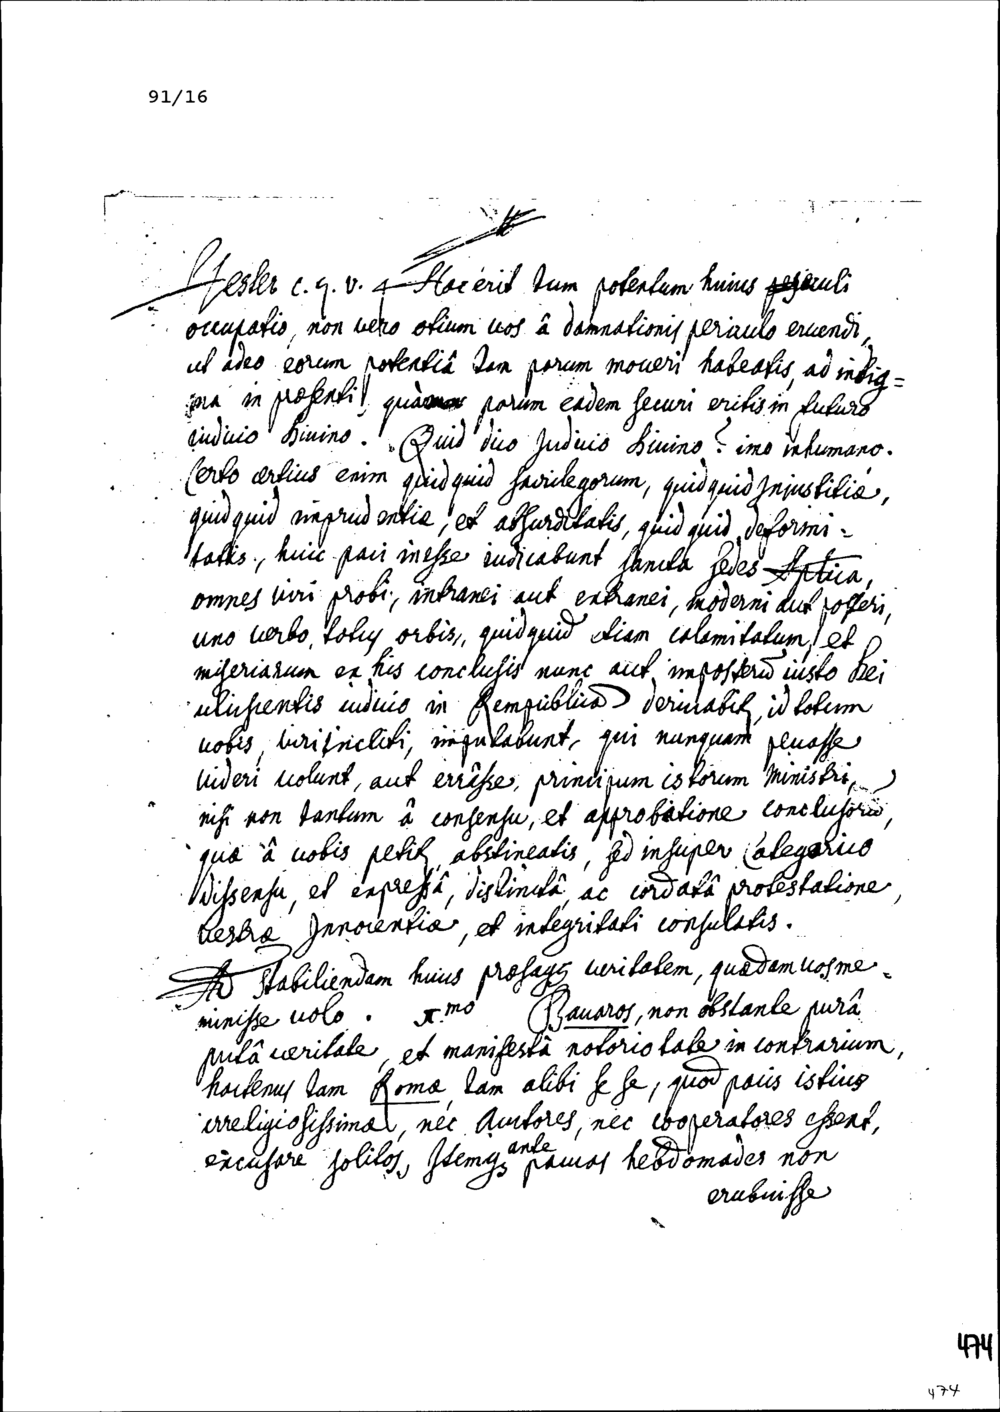 91/16
Hester c. q. v. 4 Hoc erit tum potentum huius seculi
occupatio, non vero otium vos â damnationis periculo eruendi,
ut adeo eorum potentiâ tam parum moueri habeatis, ad indig=
na in præsenti, quàm parum eadem securi eritis in futuro
iudicio Diuino. Quid dico Judicio Diuino? imo inhumano.
Certo certius enim quidquid sacrilegorum, quidquid Injustitiæ,
quidquid imprudentiæ, et absurditatis, quidquid deformi=
tatis, huic paci inesse iudicabunt sancta sedes Aptica,
omnes viri probi, intranei aut extranei, moderni aut posteri,
uno verbo, totus orbis, quidquid etiam calamitatum, et
miseriarum ex his conclusis nunc aut imposterū iusto Dei
ulciscentis iudicio in Rempublicā deriuabit, id totum
vobis, viri incliti, imputabunt, qui nunquam pecasse
videri volunt, aut errâsse, principum istorum Ministri,
nisi non tantum â consensu, et approbatione conclusorū,
quæ â vobis petit, abstineatis, sed insuper Categorico
dissensu, et expressâ, distinctâ, ac cordatâ protestatione,
vestræ Innocentiæ, et integritati consulatis.
Ad stabiliendam huius præsagij veritatem, quædam vos me=
minisse volo. Bauaros, non obstante purâ
putâ veritate, et manifestâ notorietate in contrarium,
hactenus tam Romæ, tam alibi se se, quod pacis istius
irreligiosissimæ, nec Auctores, nec cooperatores essent,
excusare solitos, Itemq ante paucas hebdomades non
erubuisse
474
474